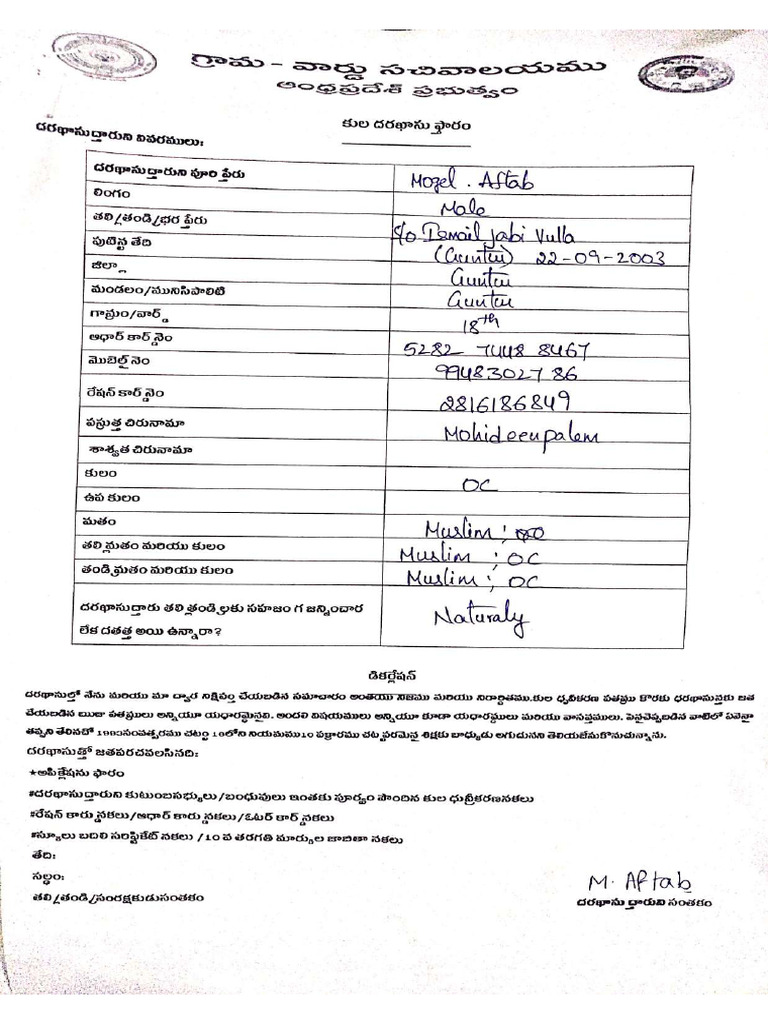 గ్రామ - వార్డు సచివాలయము
ఆంధ్రప్రదేశ్ ప్రభుత్వం
కుల దరఖాసు ఫారం
దరఖాసుద్తారుని వివరములు:
దరఖాసుద్తారుని పూరి పేరు Mogel . Aftab
లింగం Male
తల్లి/తండ్రి/భర పేరు S/o Ismail Jabi Vulla
పుట్టిన తేది (Guntur) 22-09-2003
జిల్లా Guntur
మండలం/మునిసిపాలిటి Guntur
గ్రామం/వార్డ్ 18th
ఆధార్ కార్డ్ నెం 5282 7448 8467
మొబైల్ నెం 9948302786
రేషన్ కార్డ్ నెం 2816186849
ప్రస్తుత చిరునామా Mohideenpalem
శాశ్వత చిరునామా
కులం OC
ఉప కులం
మతం Muslim ;
తల్లి మతం మరియు కులం Muslim ; OC
తండ్రి మతం మరియు కులం Muslim ; OC
దరఖాసుద్తారు తల్లి తండ్రిలకు సహజం గ జన్నించార
లేక దతత్త అయి ఉన్నారా? Naturaly
డికర్లేషన్
దరఖాసుల్తో నేను మరియు మా ద్వార నిక్షిప్తం చేయబడిన సమాచారం అంతయు నిజము మరియు నిరార్దితము.కుల ధృవీకరణ పత్రము కొరకు ధరఖాసున్తకు జత
చేయబడిన ఋజు పత్రములు అన్నియూ యధార్థమైనవి. అందలి విషయములు అన్నియూ కూడా యధార్థములు మరియు వాస్తవములు. పైనచెప్పబడిన వాటిలో ఏవైనా
తప్పని తేలినచో 1993సంవత్సరము చటం 16లోని నియమము10 ప్రకారము చట్టపరమైన శిక్షకు బాధ్యుడు అగుదునని తెలియజేసుకొనుచున్నాను.
దరఖాసుత్తో జతపరచవలసినది:
★అప్లికేషను ఫారం
#దరఖాసుద్తారుని కుటుంబసభ్యులు/బంధువులు ఇంతకు పూర్వం పొందిన కుల ధృవీకరణనకలు
#రేషన్ కార్డునకలు/ఆధార్ కార్డునకలు/ఓటర్ కార్డ్ నకలు
#స్కూలు బదిలి సర్టిఫికేట్ నకలు /10 వ తరగతి మార్కుల జాబితా నకలు
తేది:
సల్థం:
తల్లి/తండ్రి/సంరక్షకుడుసంతకం
M. Aftab
దరఖాసు ద్తారుని సంతకం